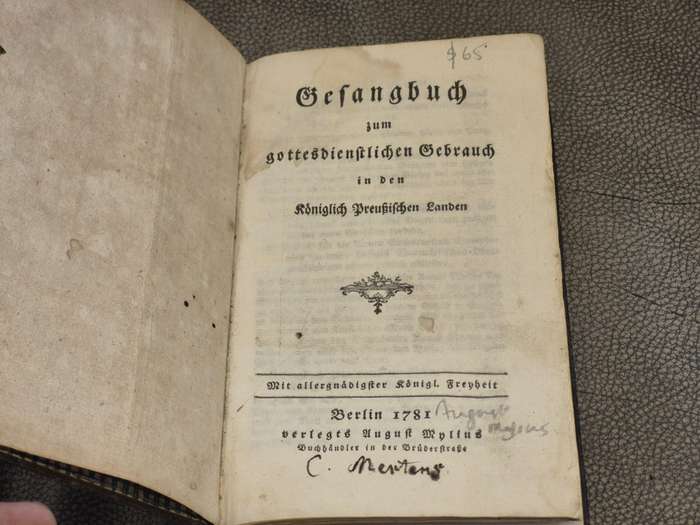 $65
Gesangbuch
zum
gottesdienstlichen Gebrauch
in den
Königlich Preußischen Landen
Mit allergnädigster Königl. Freyheit
Berlin 1781
August
verlegts August Mylius
Buchhändler in der Brüderstraße
C. Mertens